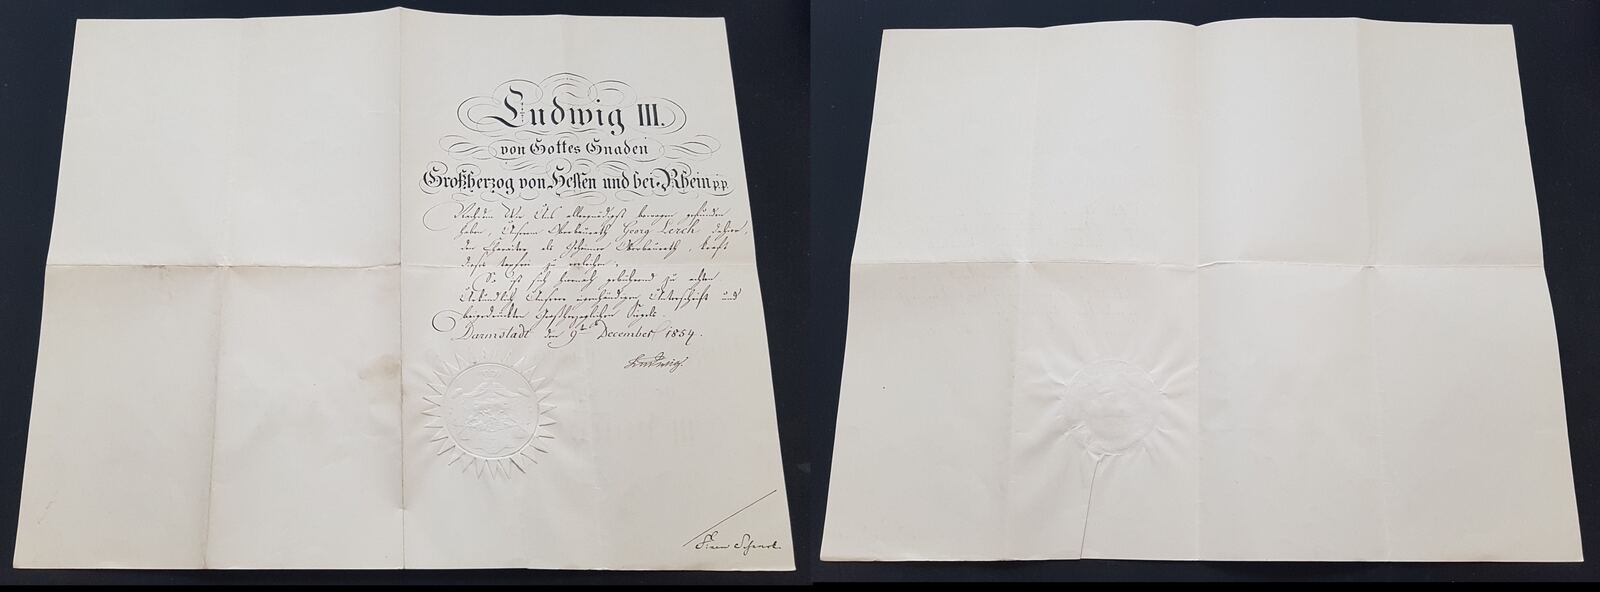 Ludwig III.
von Gottes Gnaden
Großherzog von Hessen und bei Rhein pp
Nachdem Wir Uns allergnädigst bewogen gefunden
haben, Unserem Oberbaurath Georg Lerch dahier,
den Charakter als Geheimer Oberbaurath, kraft
dieses zu verleihen,
So ist sich hiernach gebührend zu achten
Urkundlich Unserer eigenhändigen Unterschrift und
beigedruckten Großherzoglichen Siegels.
Darmstadt den 9ten December 1854.
Ludwig.